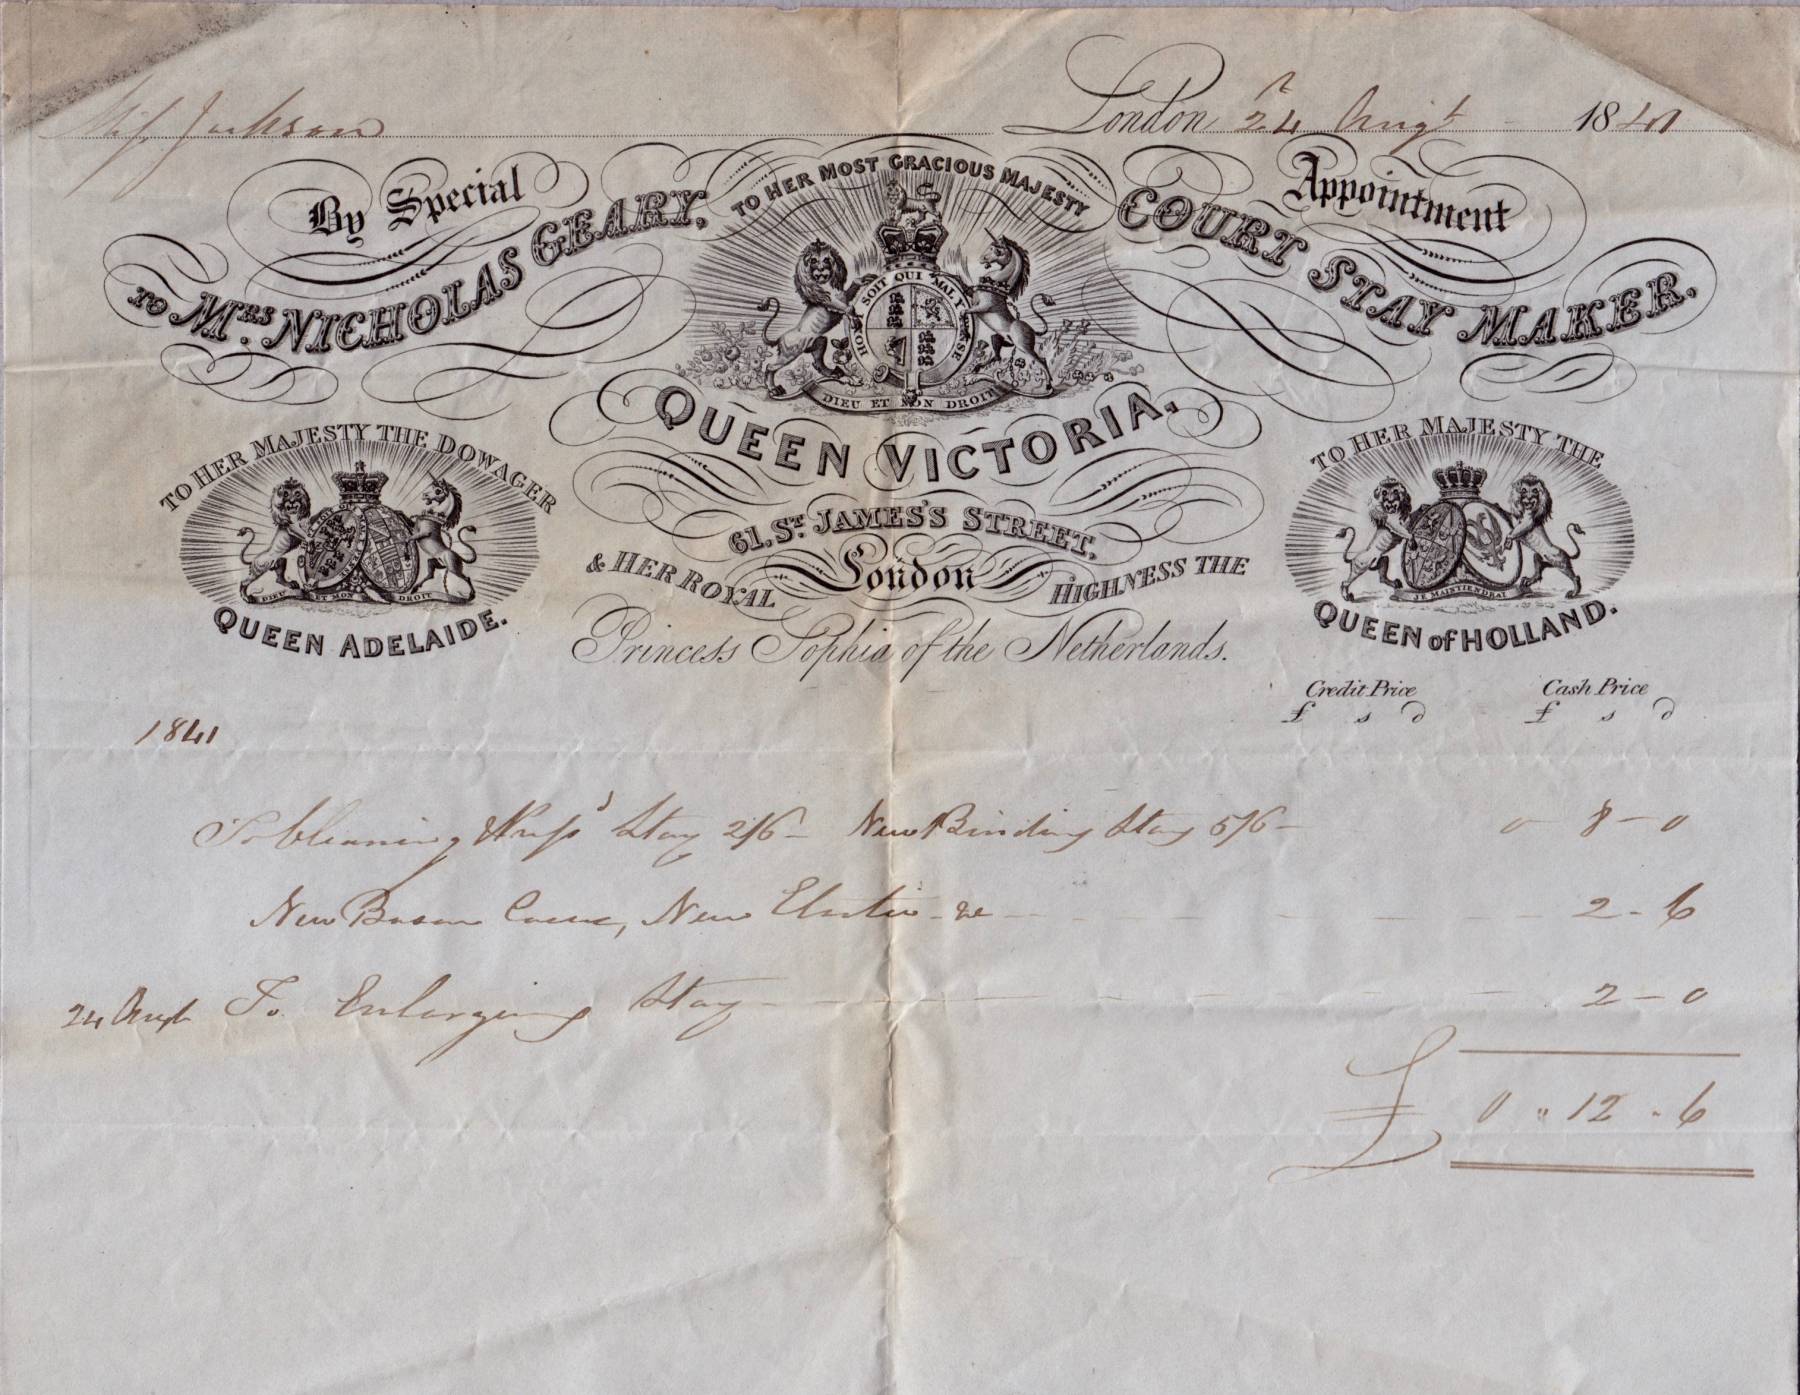 Miss Jackson
London 24 Augt 1841
By Special Appointment
TO MRS. NICHOLAS GEARY, COURT STAY MAKER.
TO HER MOST GRACIOUS MAJESTY
HONI SOIT QUI MAL Y PENSE
DIEU ET MON DROIT
QUEEN VICTORIA,
61, ST. JAMES'S STREET,
London
TO HER MAJESTY THE DOWAGER
DIEU ET MON DROIT
QUEEN ADELAIDE.
TO HER MAJESTY THE
JE MAINTIENDRAI
QUEEN of HOLLAND.
& HER ROYAL HIGHNESS THE
Princess Sophia of the Netherlands.
Credit Price Cash Price
£ s d £ s d
1841
To Cleaning & Stay 2/6 - New Binding Stay 5/6 - 0 - 8 - 0
New Bosom New Elastic - &c 2 - 6
24 Augt To Enlarging Stay 2 - 0
£ 0 " 12 - 6